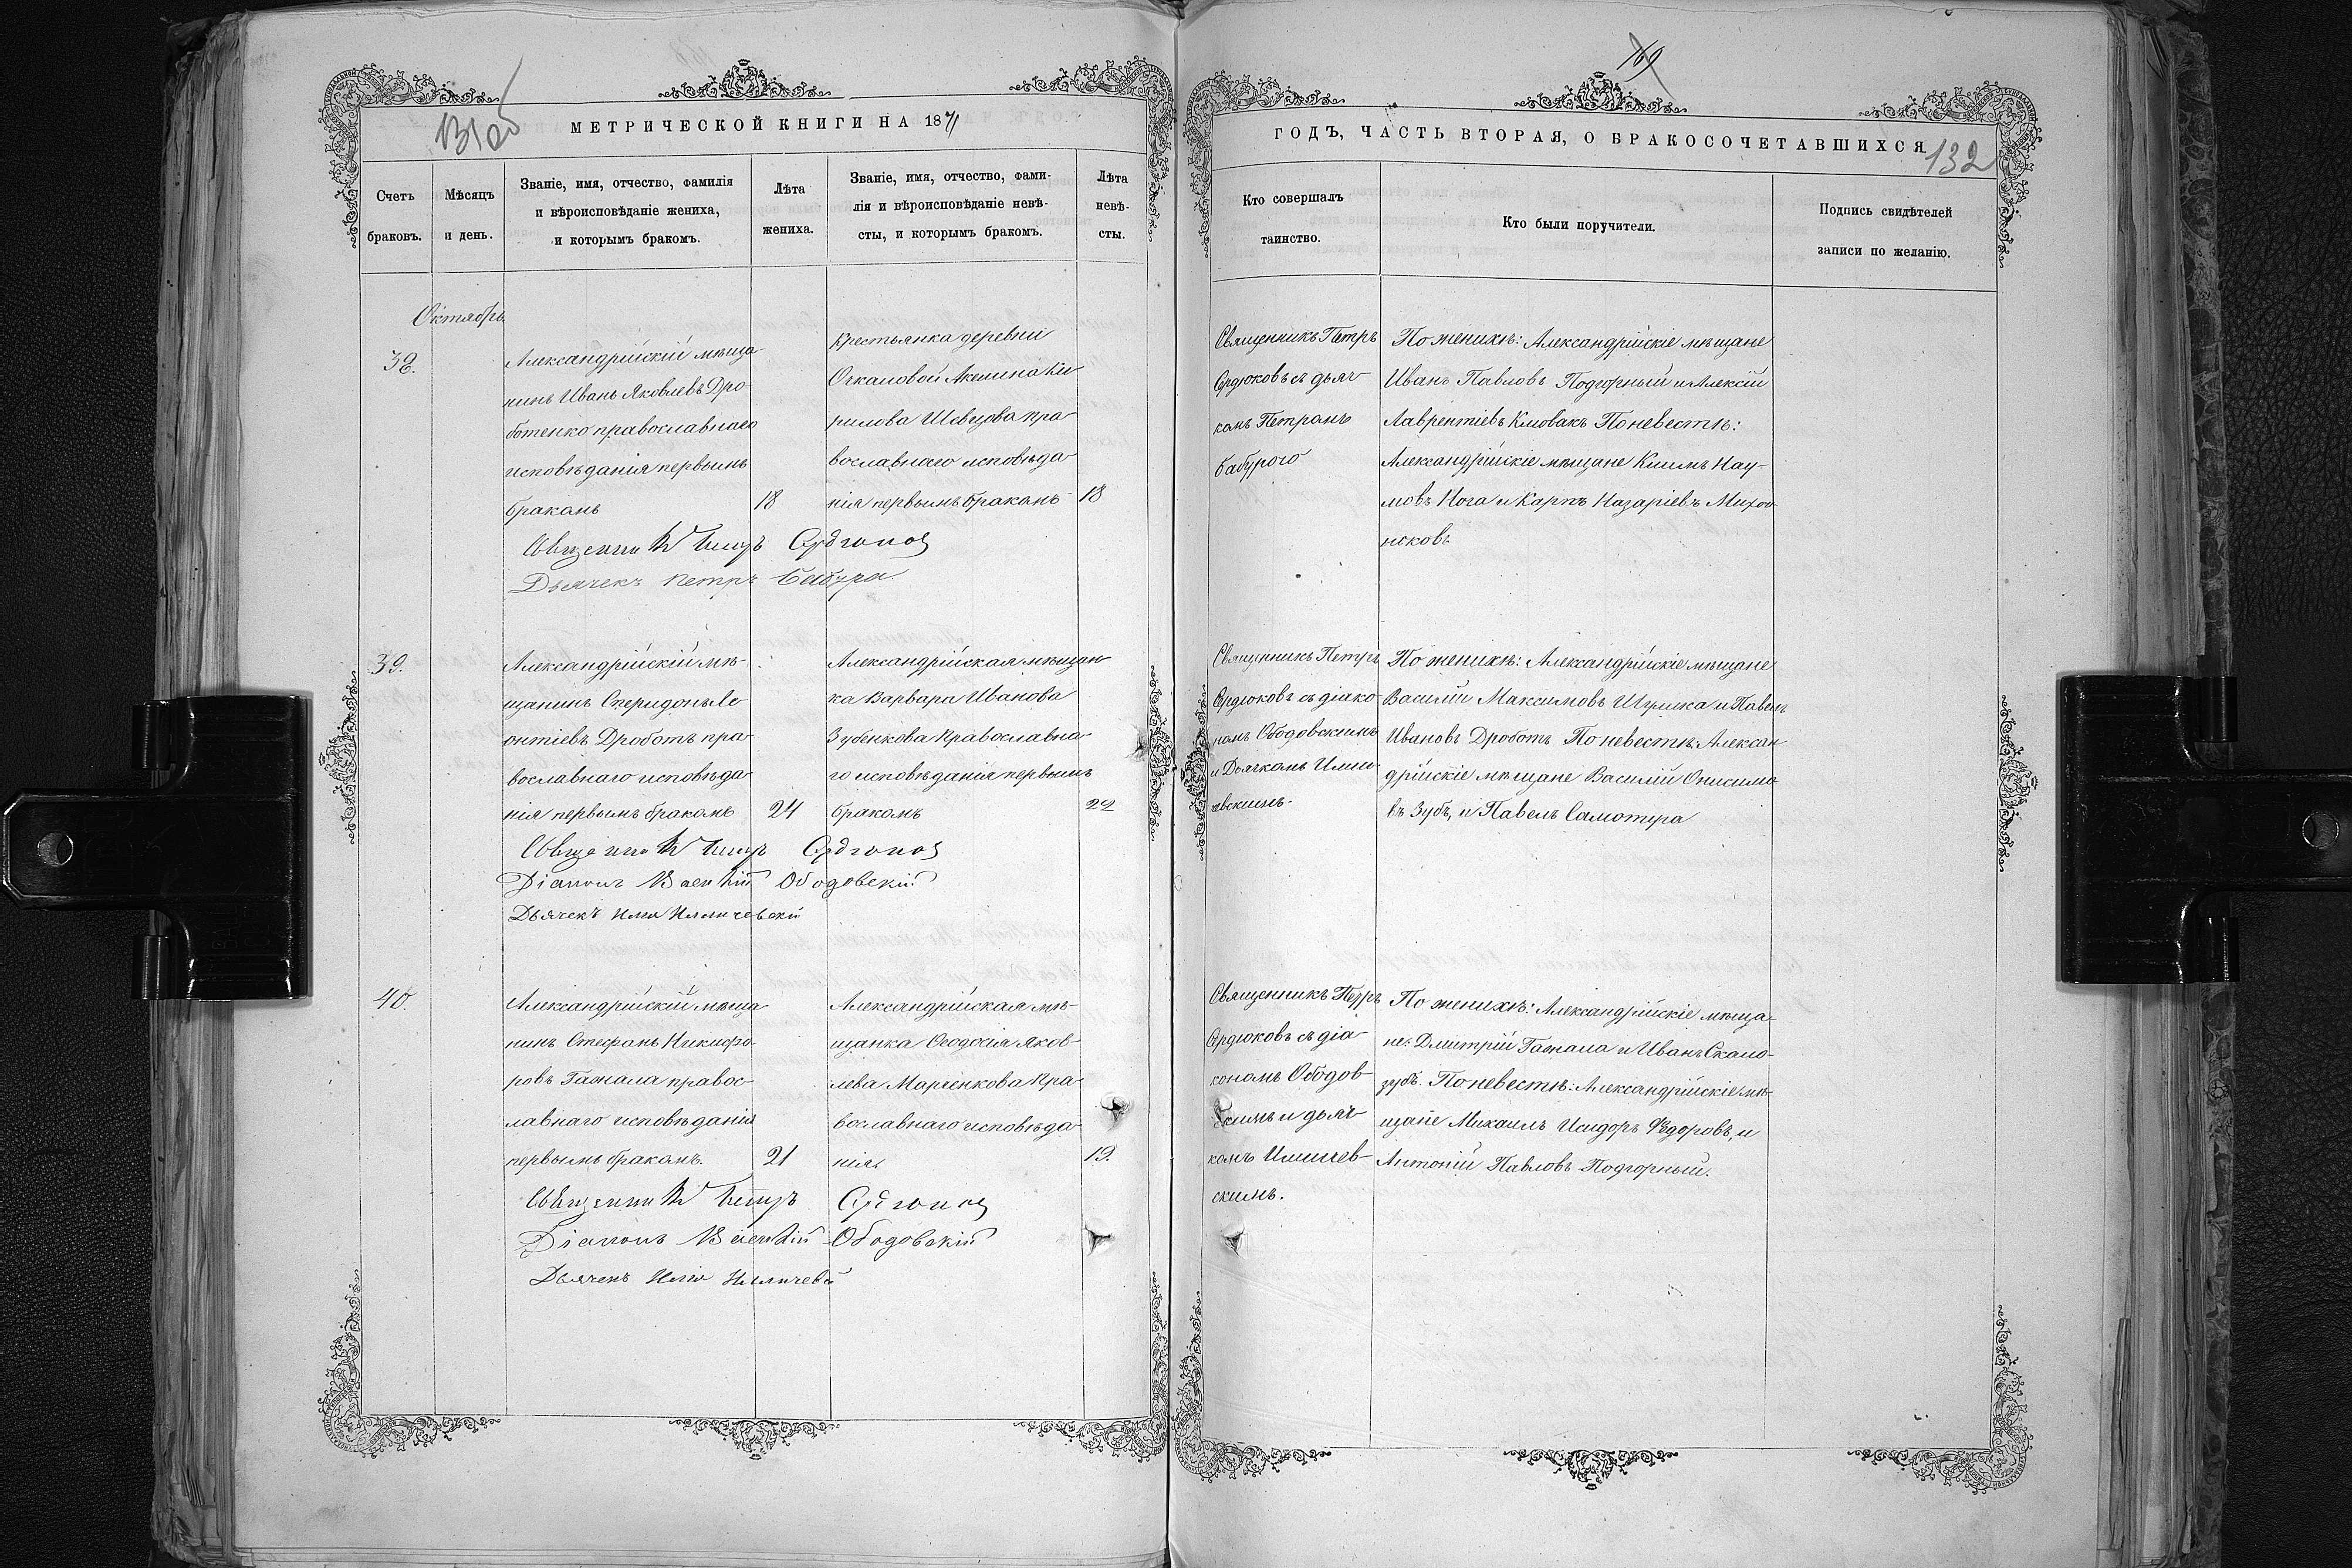 131об
МЕТРИЧЕСКОЙ КНИГИ НА 1871
Счетъ браковъ.
Мѣсяцъ и день.
Званіе, имя, отчество, фамилія
и вѣроисповѣданіе жениха,
и которымъ бракомъ.
Лѣта жениха.
Званіе, имя, отчество, фами-
лія и вѣроисповѣданіе невѣ-
сты, и которымъ бракомъ.
Лѣта невѣ-
сты.
Октябрь
38.
Александрійскій мѣща
нинъ Иванъ Яковлевъ Дро-
ботенко православнаго
исповѣданія первымъ
бракомъ
18
крестьянка деревни
Акелина Ки
рилова Шевцова пра
вославнаго исповѣда
нія первымъ бракомъ
18
Священникъ Петръ Сердюковъ
Дьячекъ Петръ Бабура.
39.
Александрійскій мѣ-
щанинъ Спиридонъ Ле
онтіевъ Дроботъ пра-
вославнаго исповѣда
нія первымъ бракомъ
24
Александрійская мѣщан
ка Варвара Иванова
Зубенкова Православна-
го исповѣданія первымъ
бракомъ
22
Священникъ Петръ Сердюковъ
Діаконъ Ободовскій
Дьячекъ Илія Иличевскій
40.
Александрійскій мѣща
нинъ Стефанъ Никифо-
ровъ Гажала правос-
лавнаго исповѣданія
первымъ бракомъ.
21
Александрійская мѣ-
щанка Феодосія Яков-
лева Марченкова Пра
вославнаго исповѣда-
нія.
19.
Священникъ Петръ Сердюковъ
Діаконъ Ободовскій
Дьячекъ Илія
169
ГОДЪ, ЧАСТЬ ВТОРАЯ, О БРАКОСОЧЕТАВШИХСЯ
132
Кто совершалъ
таинство.
Кто были поручители.
Подпись свидѣтелей
записи по желанію.
Священникъ Петръ
Сердюковъ съ дьяч-
комъ Петромъ
Бабурого
По женихѣ: Александрійскіе мѣщане
Иванъ Павловъ Подгорный и Алексій
Лаврентіевъ По невестѣ:
Александрійскіе мѣщане Климъ Нау-
мовъ Нога и Карпъ Назаріевъ
Священникъ Петръ
Сердюковъ съ діако-
номъ Ободовскимъ
и Дьячкомъ Или-
чевскимъ.
По женихѣ: Александрійскіе мѣщане
Василій Максимовъ и Павелъ
Ивановъ Дроботъ По невестѣ: Алексан-
дрійскіе мѣщане Василій Онисимо-
въ Зубъ, и Павелъ Самотуга
Священникъ Петръ
Сердюковъ съ діа
кономъ Ободов-
скимъ и дьяч-
комъ Иличев-
скимъ.
По женихѣ: Александрійскіе мѣща-
не: Дмитрій Гажала и Иванъ Скало-
зубъ. По невестѣ: Александрійскіе мѣ-
щане Михаилъ Исидоръ Федоровъ, и
Антоній Павловъ Подгорный.